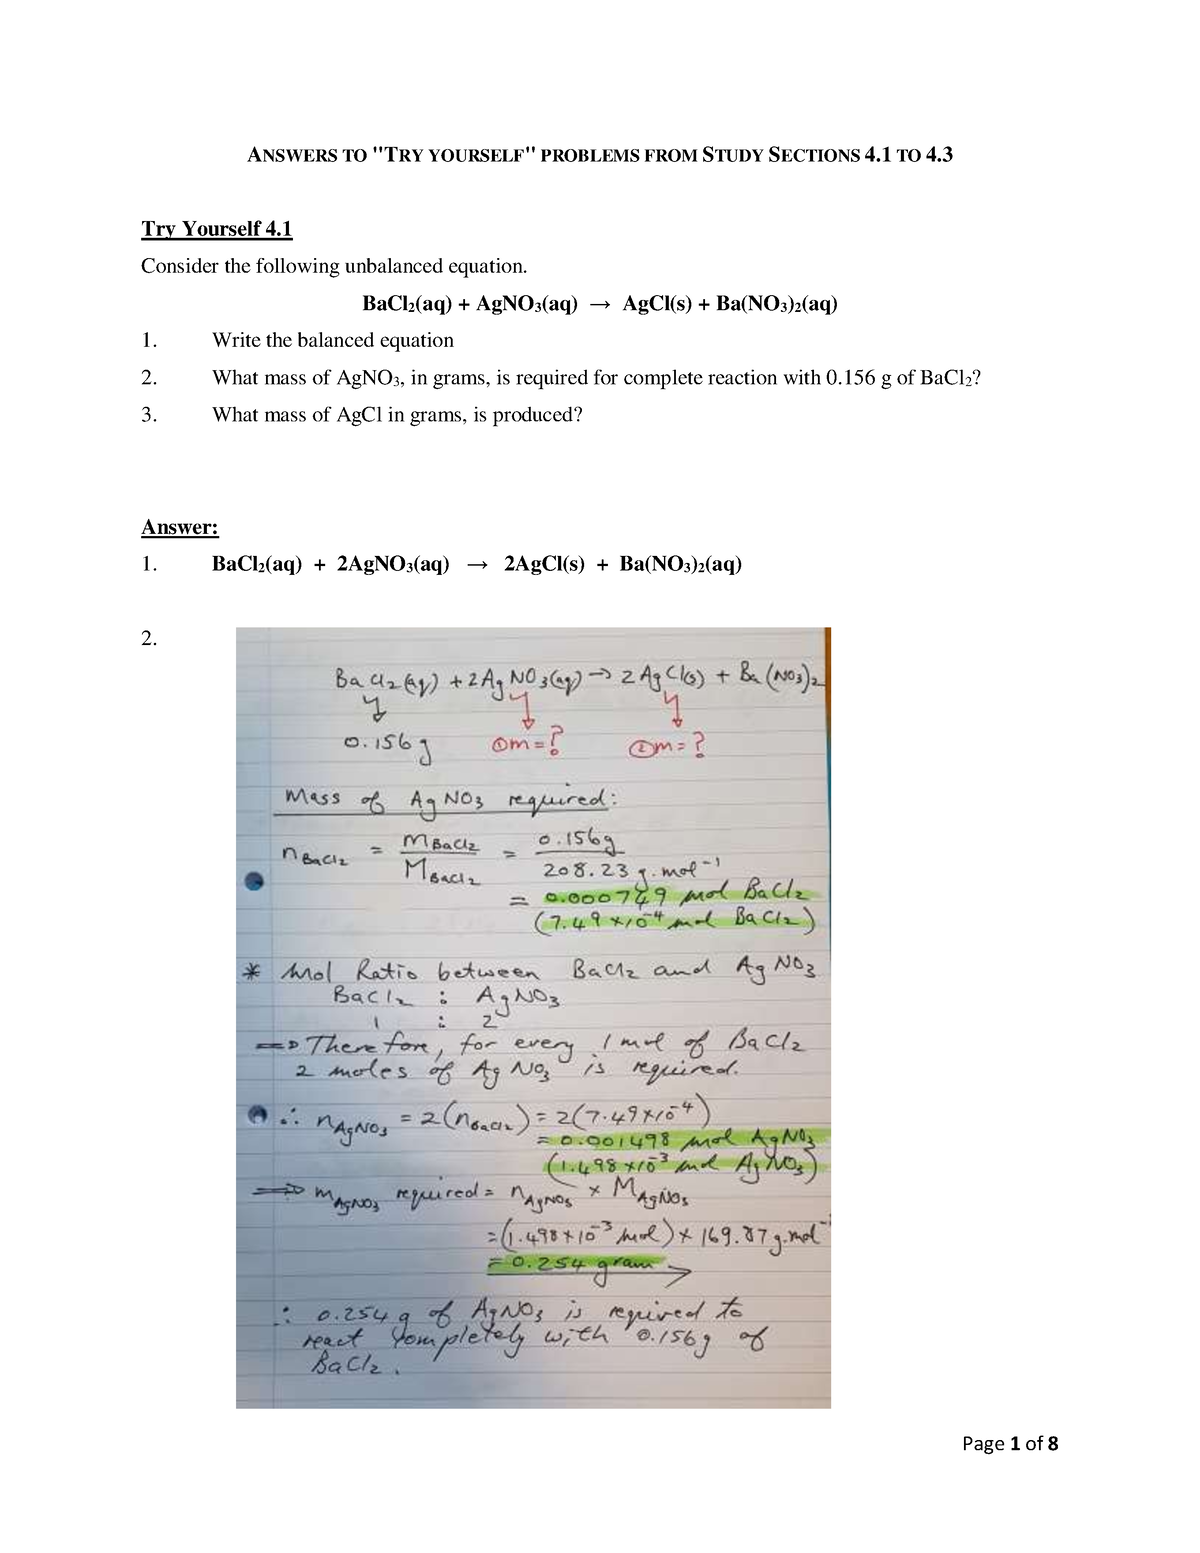 ANSWERS TO "TRY YOURSELF" PROBLEMS FROM STUDY SECTIONS 4.1 TO 4.3
Try Yourself 4.1
Consider the following unbalanced equation.
BaCl₂(aq) + AgNO₃(aq) → AgCl(s) + Ba(NO₃)₂(aq)
1. Write the balanced equation
2. What mass of AgNO₃, in grams, is required for complete reaction with 0.156 g of BaCl₂?
3. What mass of AgCl in grams, is produced?
Answer:
1. BaCl₂(aq) + 2AgNO₃(aq) → 2AgCl(s) + Ba(NO₃)₂(aq)
2.
BaCl₂(aq) + 2AgNO₃(aq) → 2AgCl(s) + Ba(NO₃)₂
0.156g ①m=? ②m=?
Mass of AgNO₃ required:
nBaCl₂ = mBaCl₂ / MBaCl₂ = 0.156g / 208.23 g.mol⁻¹
= 0.000749 mol BaCl₂
(7.49×10⁻⁴ mol BaCl₂)
* Mol Ratio between BaCl₂ and AgNO₃
BaCl₂ : AgNO₃
1 : 2
⇒ Therefore, for every 1 mol of BaCl₂
2 moles of AgNO₃ is required.
∴ nAgNO₃ = 2(nBaCl₂) = 2(7.49×10⁻⁴)
= 0.001498 mol AgNO₃
(1.498×10⁻³ mol AgNO₃)
⇒ mAgNO₃ required = nAgNO₃ × MAgNO₃
= (1.498×10⁻³ mol) × 169.87 g.mol⁻¹
= 0.254 gram
∴ 0.254 g of AgNO₃ is required to
react completely with 0.156g of
BaCl₂.
Page 1 of 8